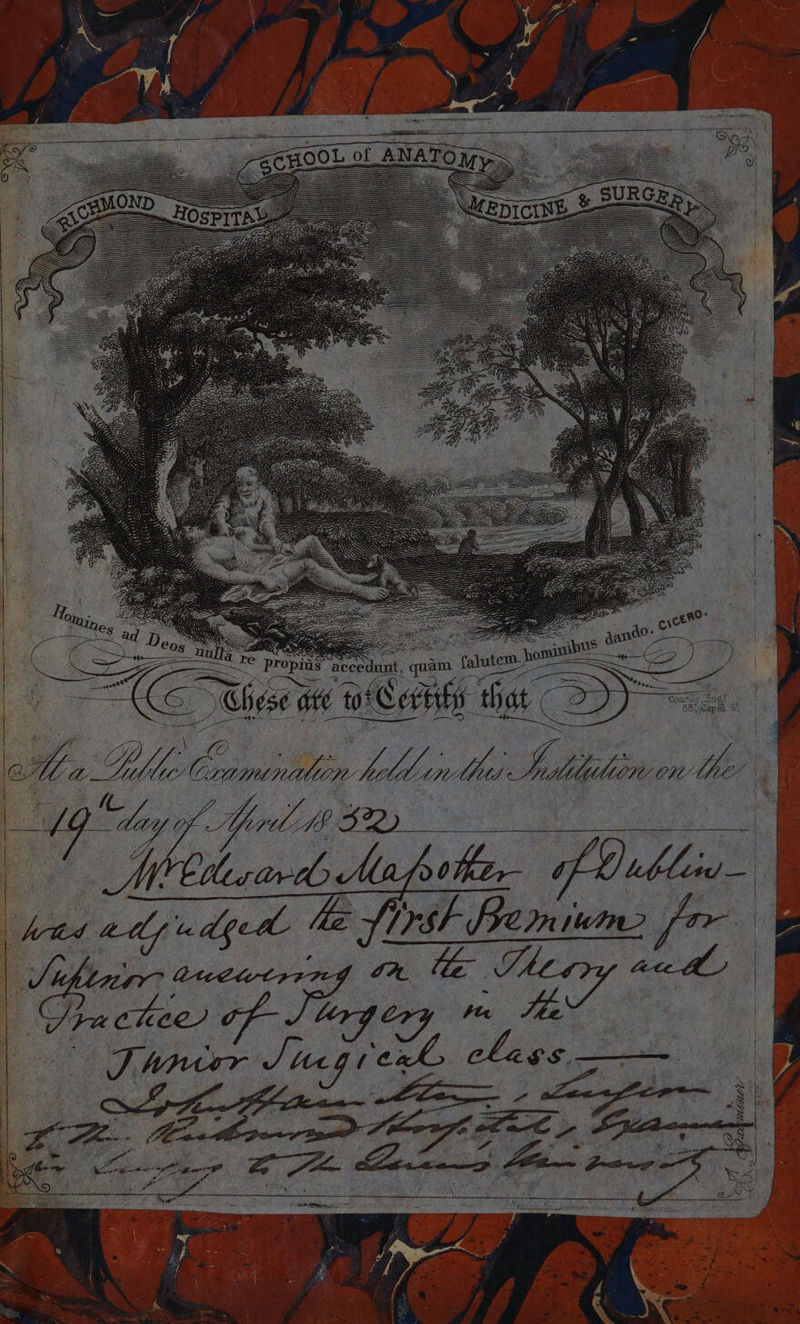 SCHOOL of ANATOMY
RICHMOND HOSPITAL
MEDICINE & SURGERY
Homines ad Deos nulla re propiùs accedunt, quàm ſalutem hominibus dando. CICERO.
These are to Certify that
At a Public Examination held in this Institution on the
19th day of April 1852
Mr Edward Maſsother of Dublin -
was adjudged the first Premium for
Superior answering on the Theory and
Practice of Surgery in the
Junior Surgical class
John Hamilton, Surgeon
to the Richmond Hospital, Examiner
in Surgery to the Queen's University
Examiner